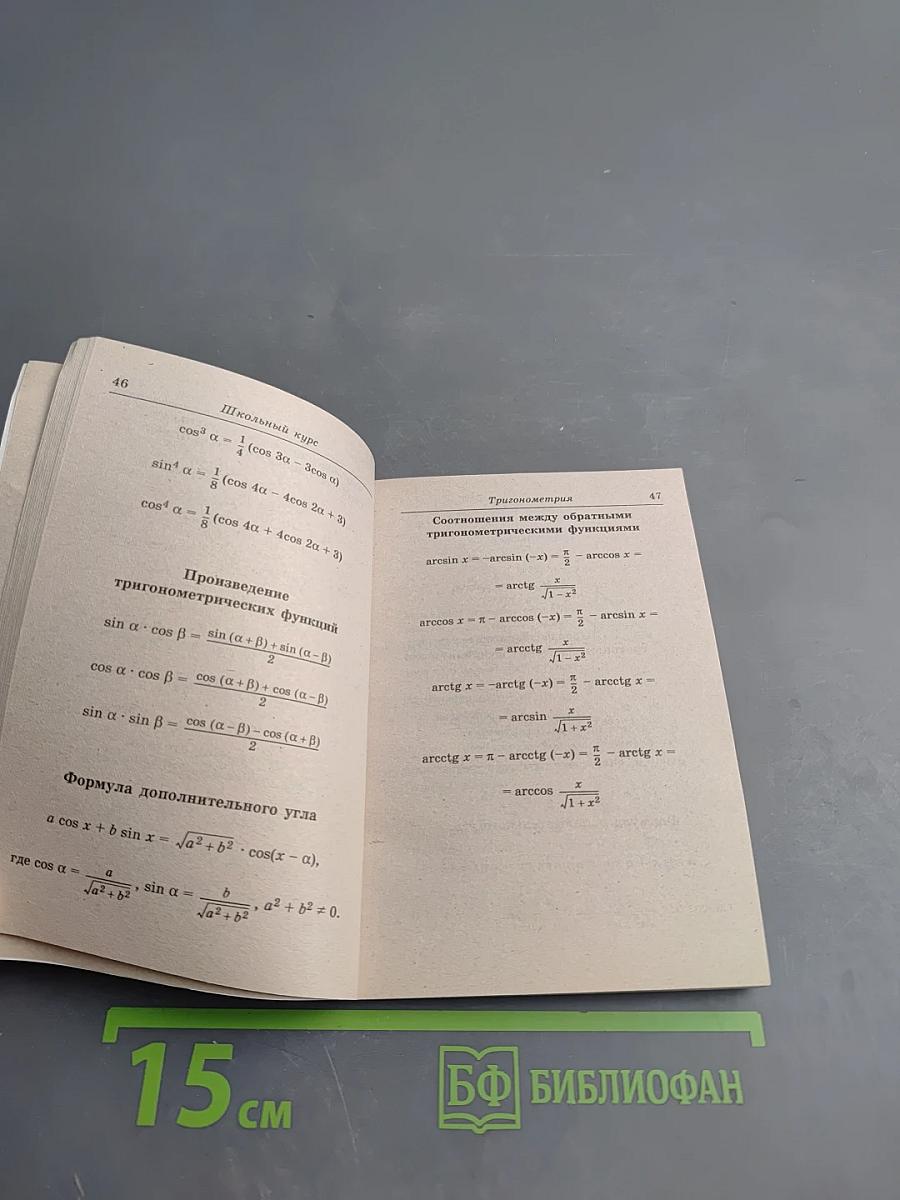 46
Школьный курс
cos³ α = 1/4 (cos 3α − 3cos α)
sin⁴ α = 1/8 (cos 4α − 4cos 2α + 3)
cos⁴ α = 1/8 (cos 4α + 4cos 2α + 3)
Произведение
тригонометрических функций
sin α · cos β = (sin (α + β) + sin (α − β))/2
cos α · cos β = (cos (α + β) + cos (α − β))/2
sin α · sin β = (cos (α − β) − cos (α + β))/2
Формула дополнительного угла
a cos x + b sin x = √(a² + b²) · cos(x − α),
где cos α = a/√(a² + b²), sin α = b/√(a² + b²), a² + b² ≠ 0.
Тригонометрия 47
Соотношения между обратными
тригонометрическими функциями
arcsin x = −arcsin (−x) = π/2 − arccos x =
= arctg x/√(1 − x²)
arccos x = π − arccos (−x) = π/2 − arcsin x =
= arcctg x/√(1 − x²)
arctg x = −arctg (−x) = π/2 − arcctg x =
= arcsin x/√(1 + x²)
arcctg x = π − arcctg (−x) = π/2 − arctg x =
= arccos x/√(1 + x²)
15 см
БФ БИБЛИОФАН